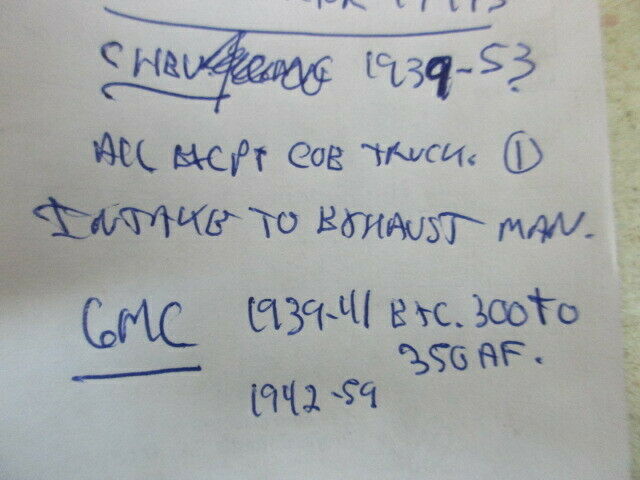 CHEV 1939-53
ALL EXCPT COE TRUCK. 1
INTAKE TO EXHAUST MAN.
GMC 1939-41 EXC. 300 TO
350 AF.
1942-59